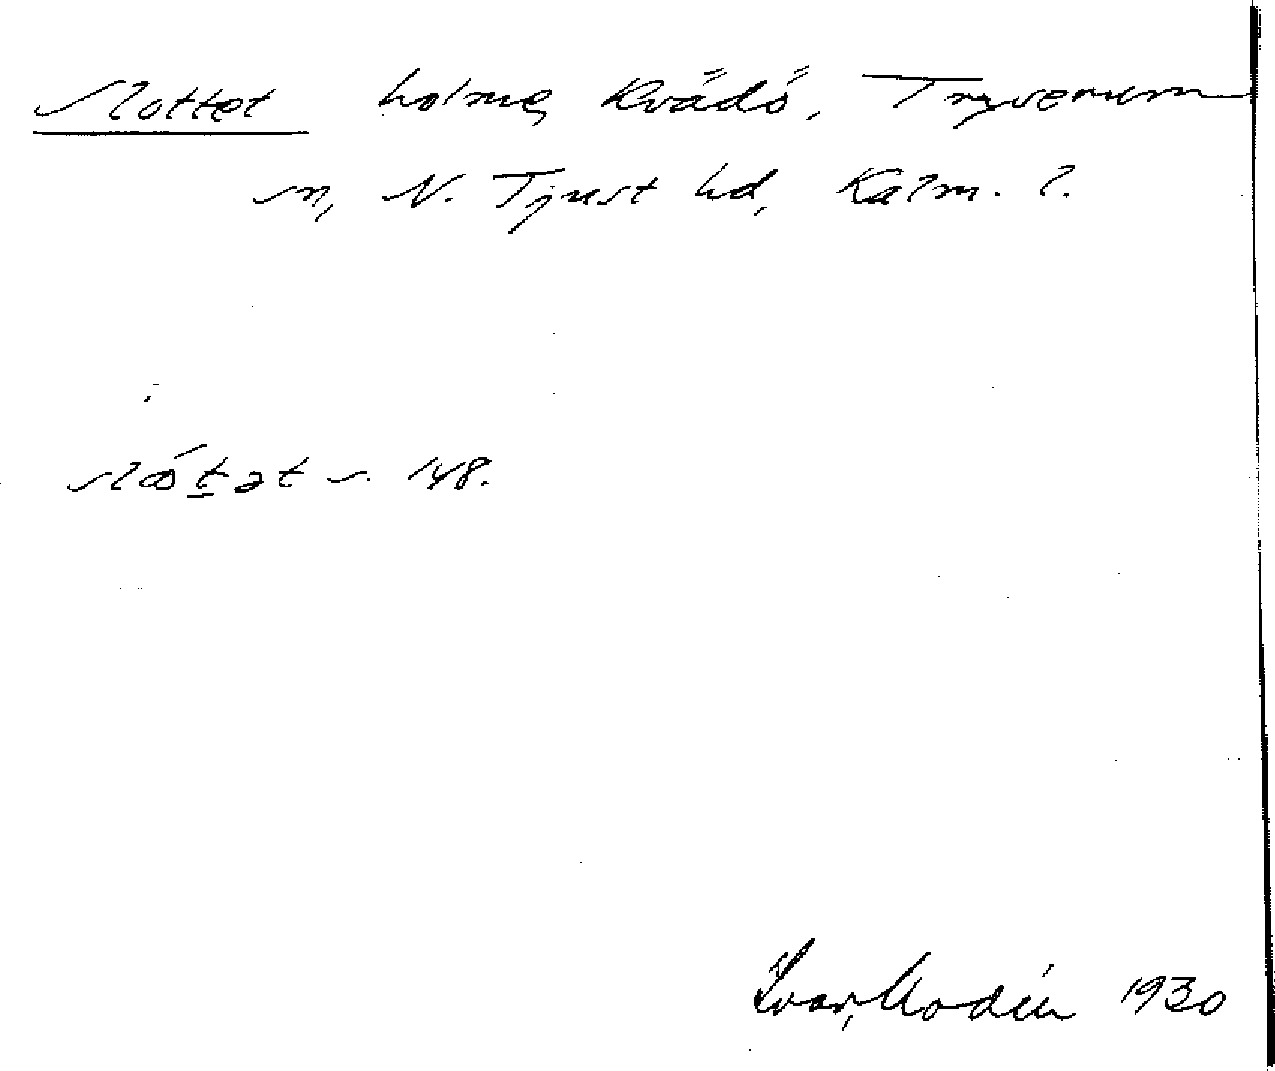 Slottet holme, Kvädö, Tryserum
sn, N. Tjust hd, Kalm. l.
slȯ́t̠ət s. 148.
Ivar Modéer 1930